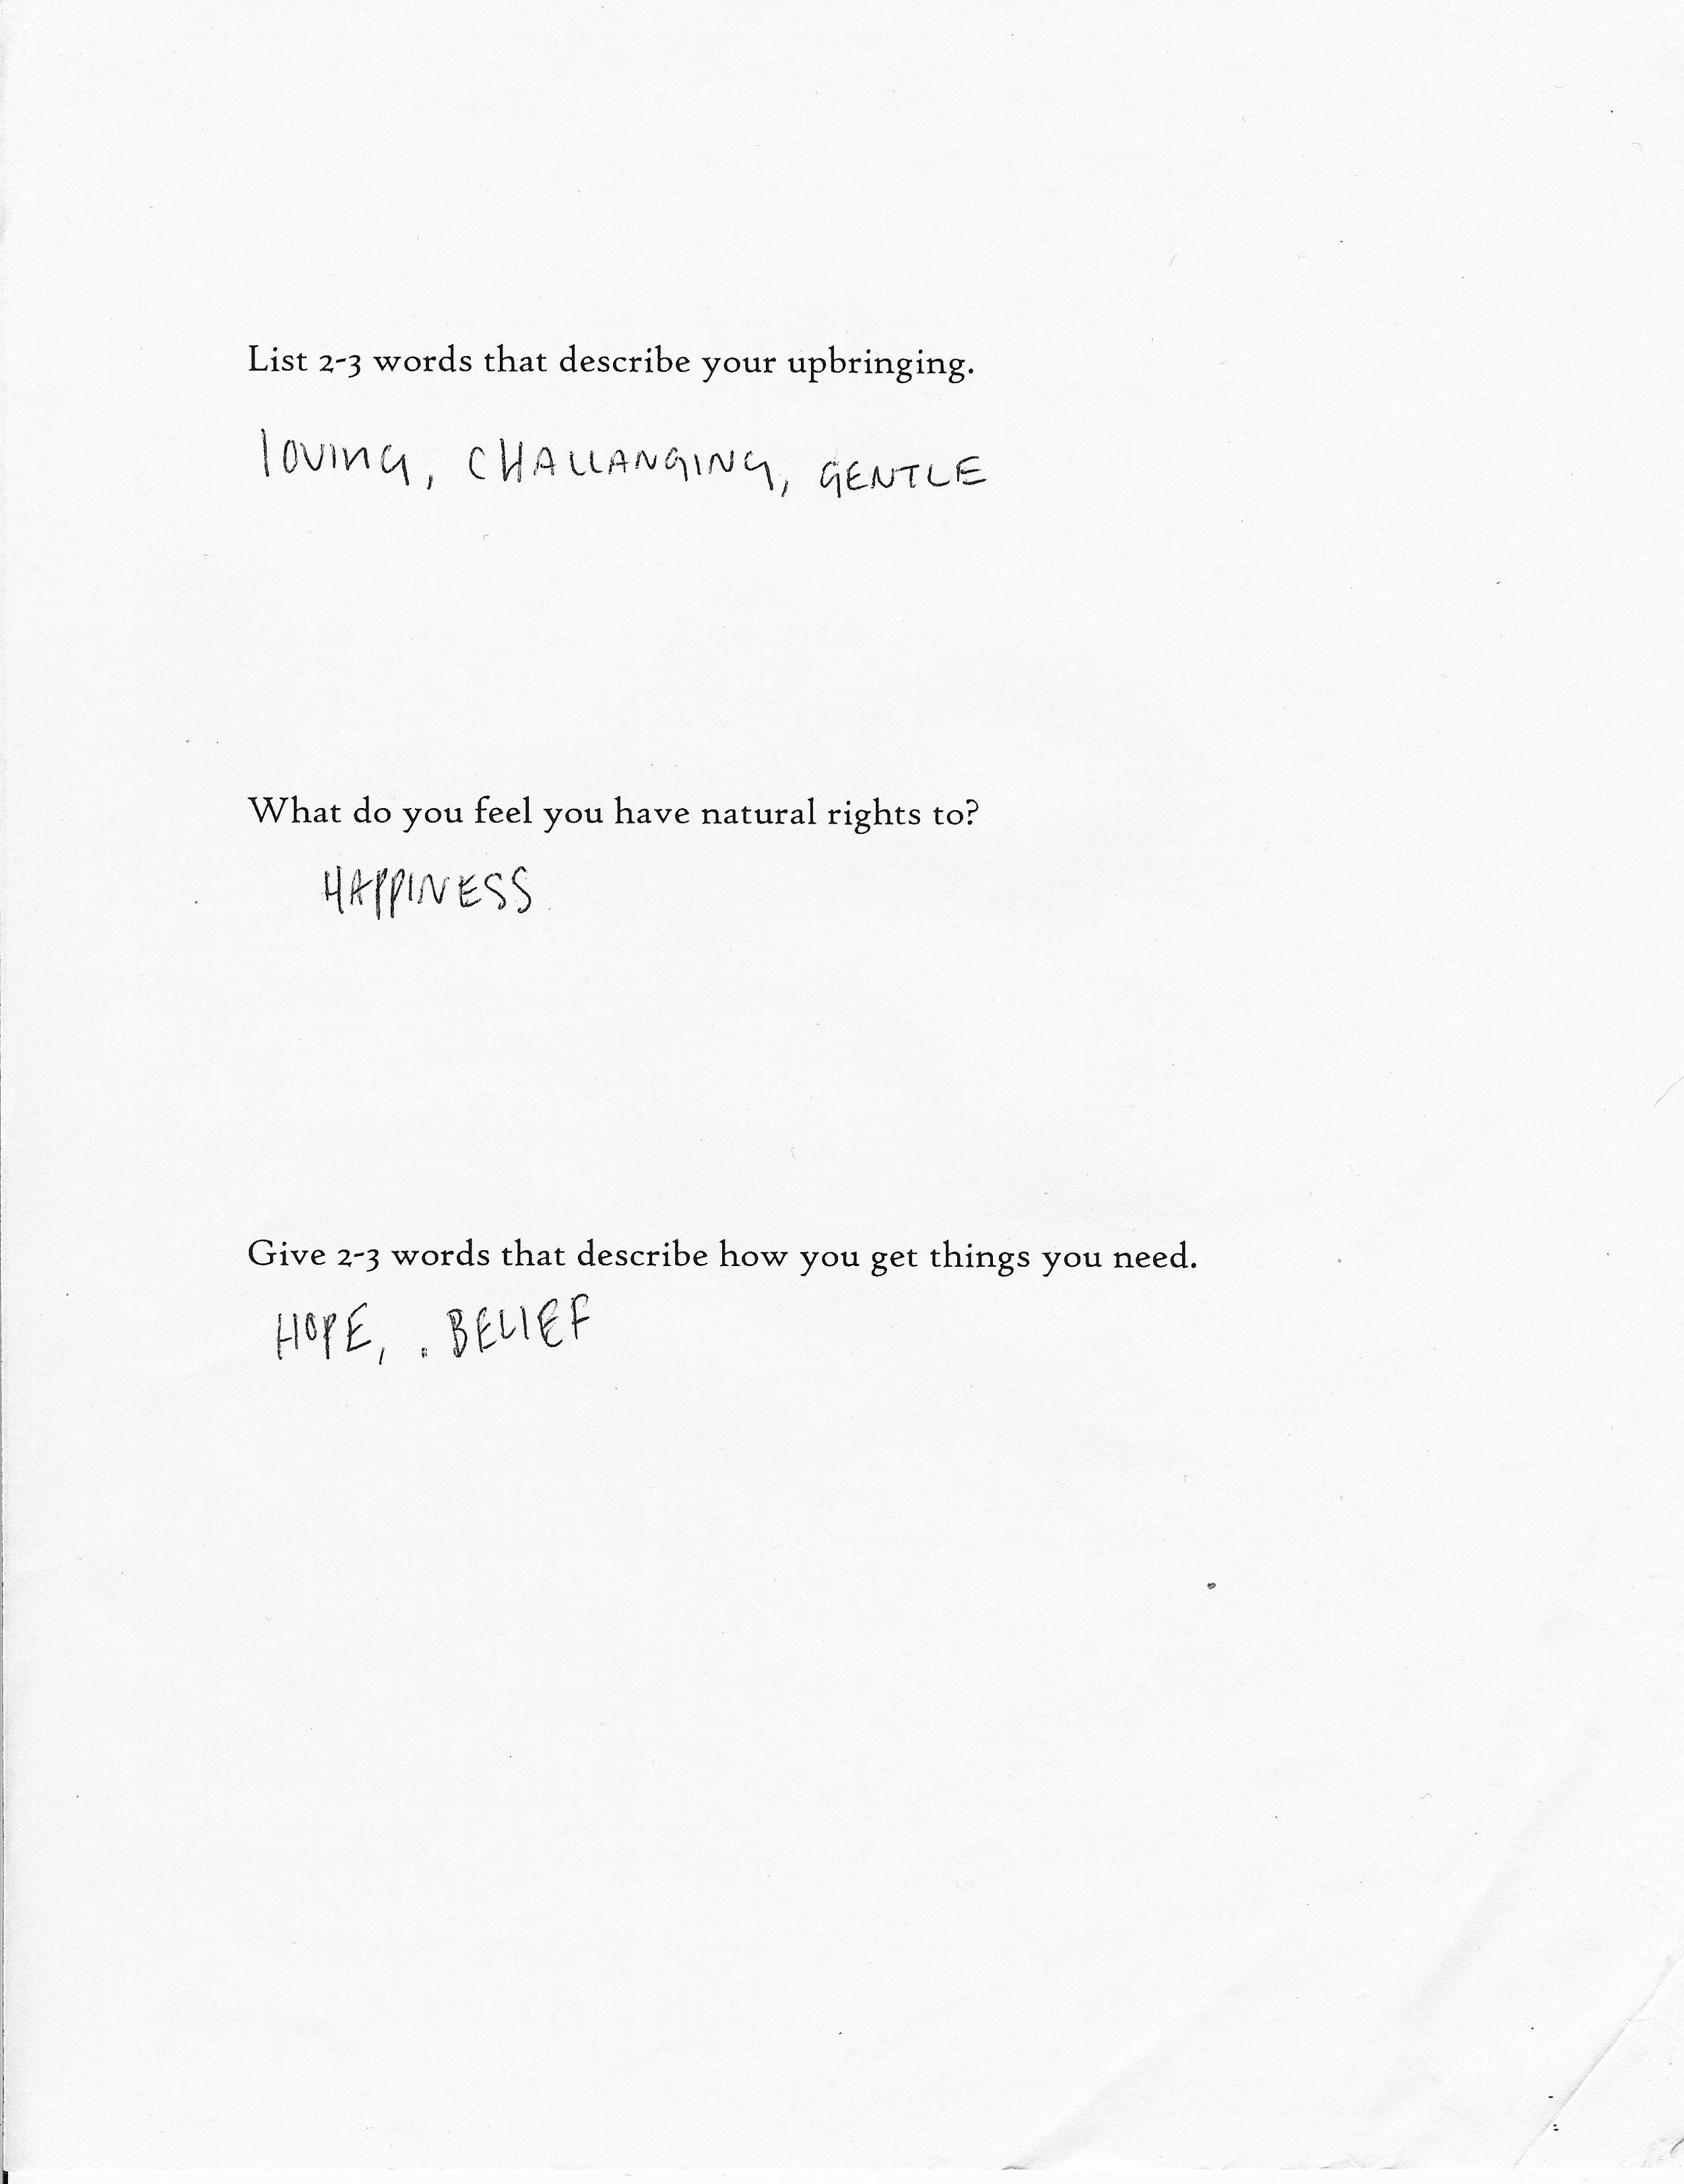 List 2-3 words that describe your upbringing.
lOVING, CHALLANGING, GENTLE
What do you feel you have natural rights to?
HAPPINESS
Give 2-3 words that describe how you get things you need.
HOPE, . BELIEF